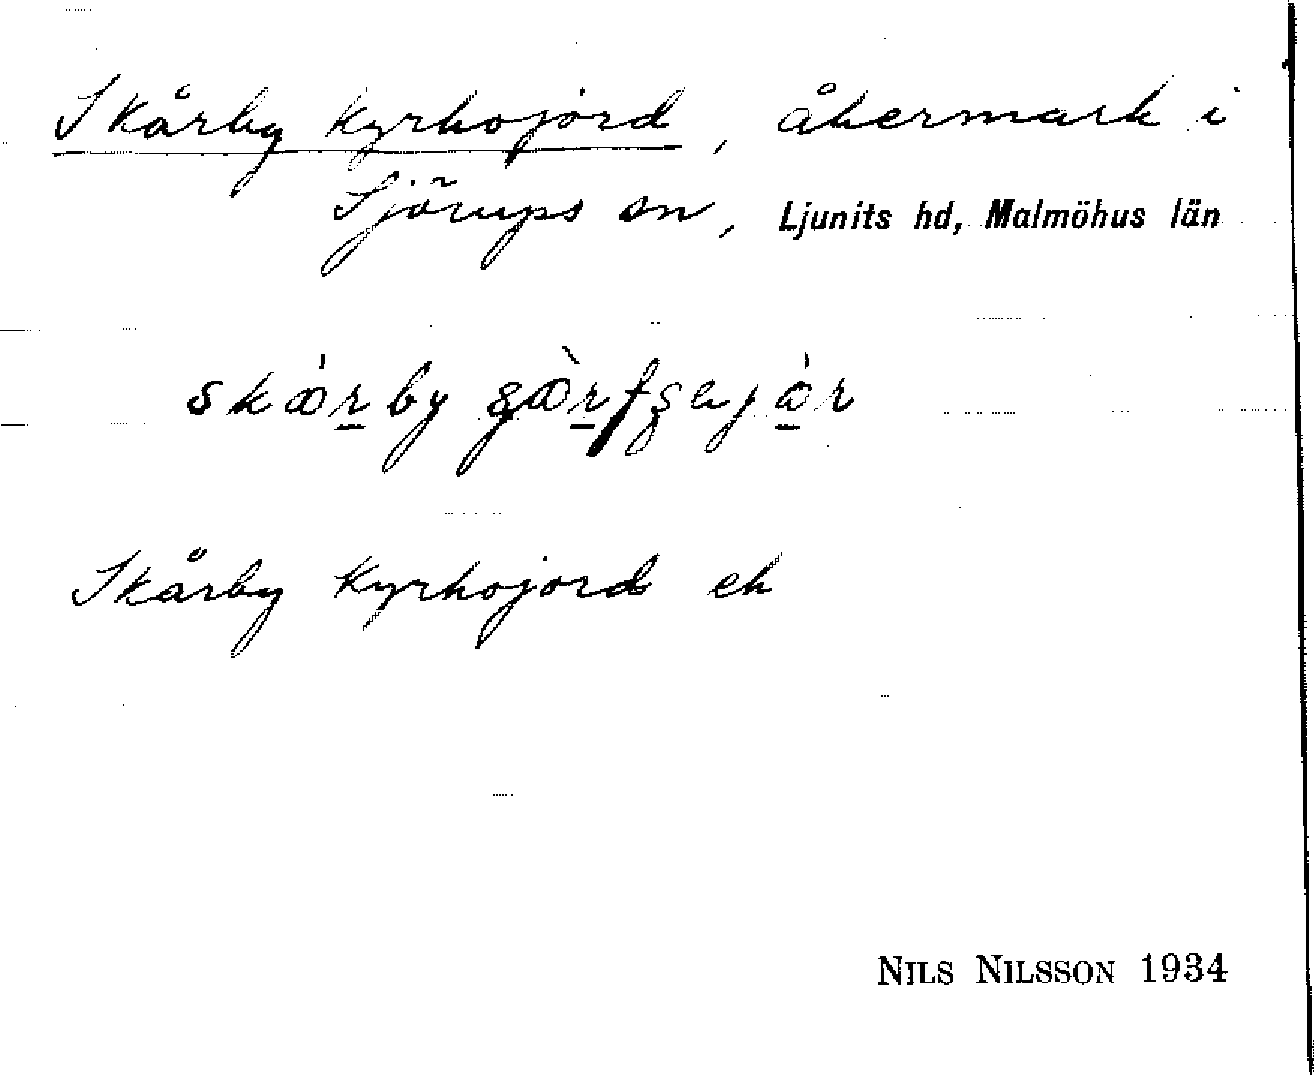 Skårby kyrkojord, åkermark i
Sjörups sn, Ljunits hd, Malmöhus län
Skårby Kyrkojord ek
NILS NILSSON 1934